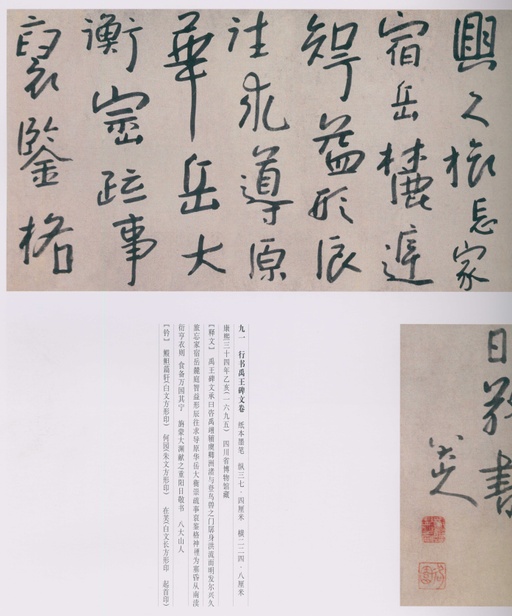 興久旅忘家
宿岳麓庭
智益形辰
往求導原
華岳大
衡崇疏事
裒鑒格
日敬書
八大山人
九一 行书禹王碑文卷 纸本墨笔 纵三七·四厘米 横二二四·八厘米
康熙三十四年乙亥(一六九五) 四川省博物馆藏
【释文】 禹王碑文承曰咨禹翊辅虞卿洲渚与登鸟兽之门居身洪流而明发尔兴久
旅忘家宿岳麓庭智益形辰往求导原华岳大衡崇疏事裒鉴格神禋为塞昏从南渎
衍亨衣则 食备万国其宁 施蒙大渊献之重阳日敬书 八大山人
【钤】 (白文方形印) 何园(朱文方形印) 在芙(白文长方形印 起首印)